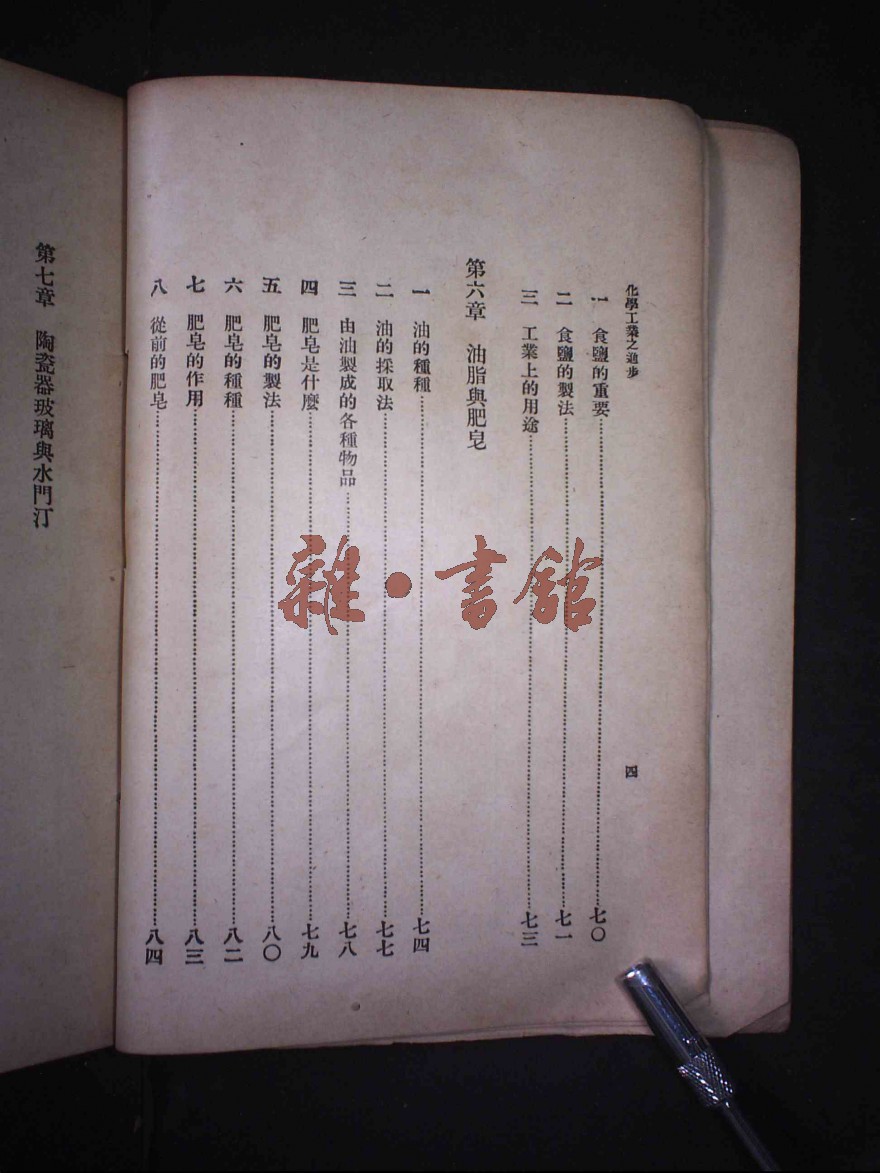 化學工業之進步
四
一 食鹽的重要……七〇
二 食鹽的製法……七一
三 工業上的用途……七三
第六章 油脂與肥皂
一 油的種種……七四
二 油的採取法……七七
三 由油製成的各種物品……七八
四 肥皂是什麼……七九
五 肥皂的製法……八〇
六 肥皂的種種……八二
七 肥皂的作用……八三
八 從前的肥皂……八四
第七章 陶瓷器玻璃與水門汀
雜·書館